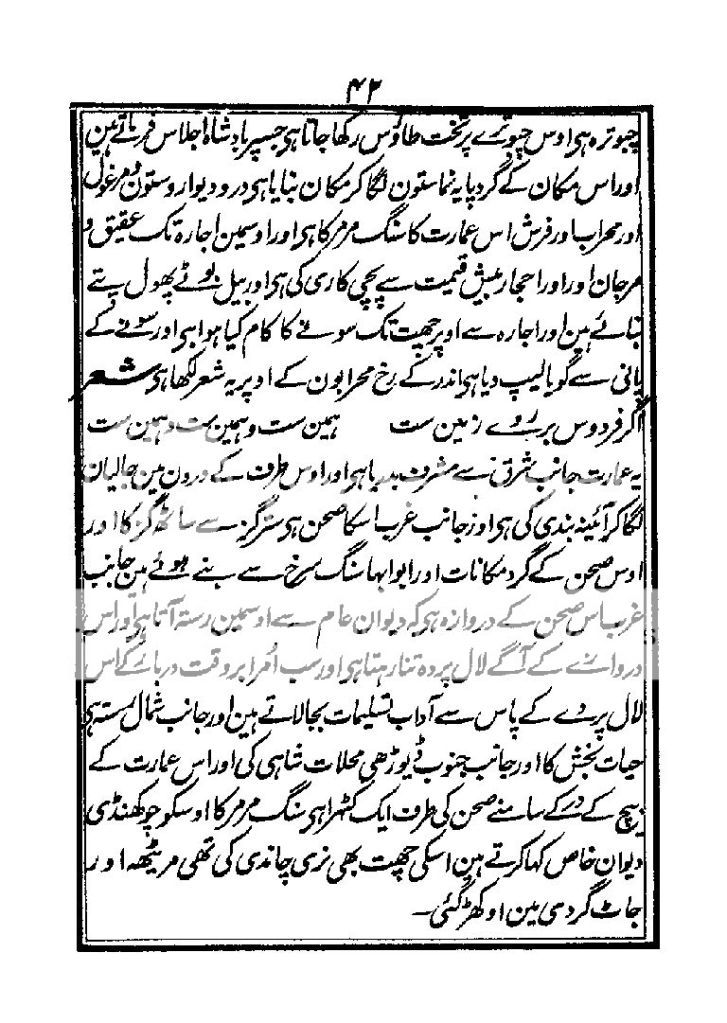 ۴۲
چبوترہ ہی اوس چبوترے پر تخت طاؤس رکھا جاتا ہی جسپر بادشاہ اجلاس فرماتے ہین
اور اس مکان کے گرد پایہ نما ستون لگا کر مکان بنایا ہی در و دیوار و ستون و مرغول
اور محراب اور فرش اس عمارت کا سنگ مرمر کا ہی اور اوسمین اجارہ تک عقیق و
مرجان اور اور احجار بیش قیمت سے پچی کاری کی ہی اور بیل بوٹے پھول پتے
بنائے ہین اور اجارہ سے اوپر چھت تک سونے کا کام کیا ہوا ہی اور سونے کے
پانی سے گویا لیپ دیا ہی اندر کے رخ محرابون کے اوپر یہ شعر لکھا ہی شعر
اگر فردوس بر روے زمین ست ہمین ست و ہمین ست و ہمین ست
یہ عمارت جانب شرق سے مشرف بدریا ہی اور اوس طرف کے درون مین جالیان
لگا کر آئینہ بندی کی ہی اور جانب غرب اسکا صحن ہی ستر گز سے ساٹھ گز کا اور
اوس صحن کے گرد مکانات اور ابوابہا سنگ سرخ سے بنے ہوئے ہین جانب
غرب اس صحن کے دروازہ ہی کہ دیوان عام سے اوسمین رستہ آتا ہی اور اس
دروازے کے آگے لال پردہ تنا رہتا ہی اور سب اُمرا بر وقت دربار کے اس
لال پردے کے پاس سے آداب تسلیمات بجا لاتے ہین اور جانب شمال رستہ ہی
حیات بخش کا اور جانب جنوب ڈیوڑھی محلات شاہی کی اور اس عمارت کے
بیچ کے در کے سامنے صحن کی طرف ایک کٹہرا ہی سنگ مرمر کا اوسکو چوکھنڈی
دیوان خاص کہا کرتے ہین اسکی چھت بھی نری چاندی کی تھی مرہٹھہ اور
جاٹ گردی مین اوکھڑ گئی۔